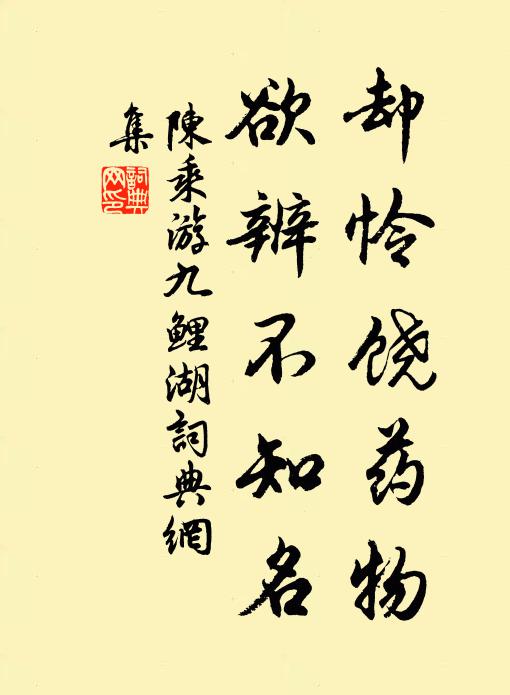 却怜饶药物
欲辨不知名
陳乘游九鯉湖詞典網
集
詞典
网印